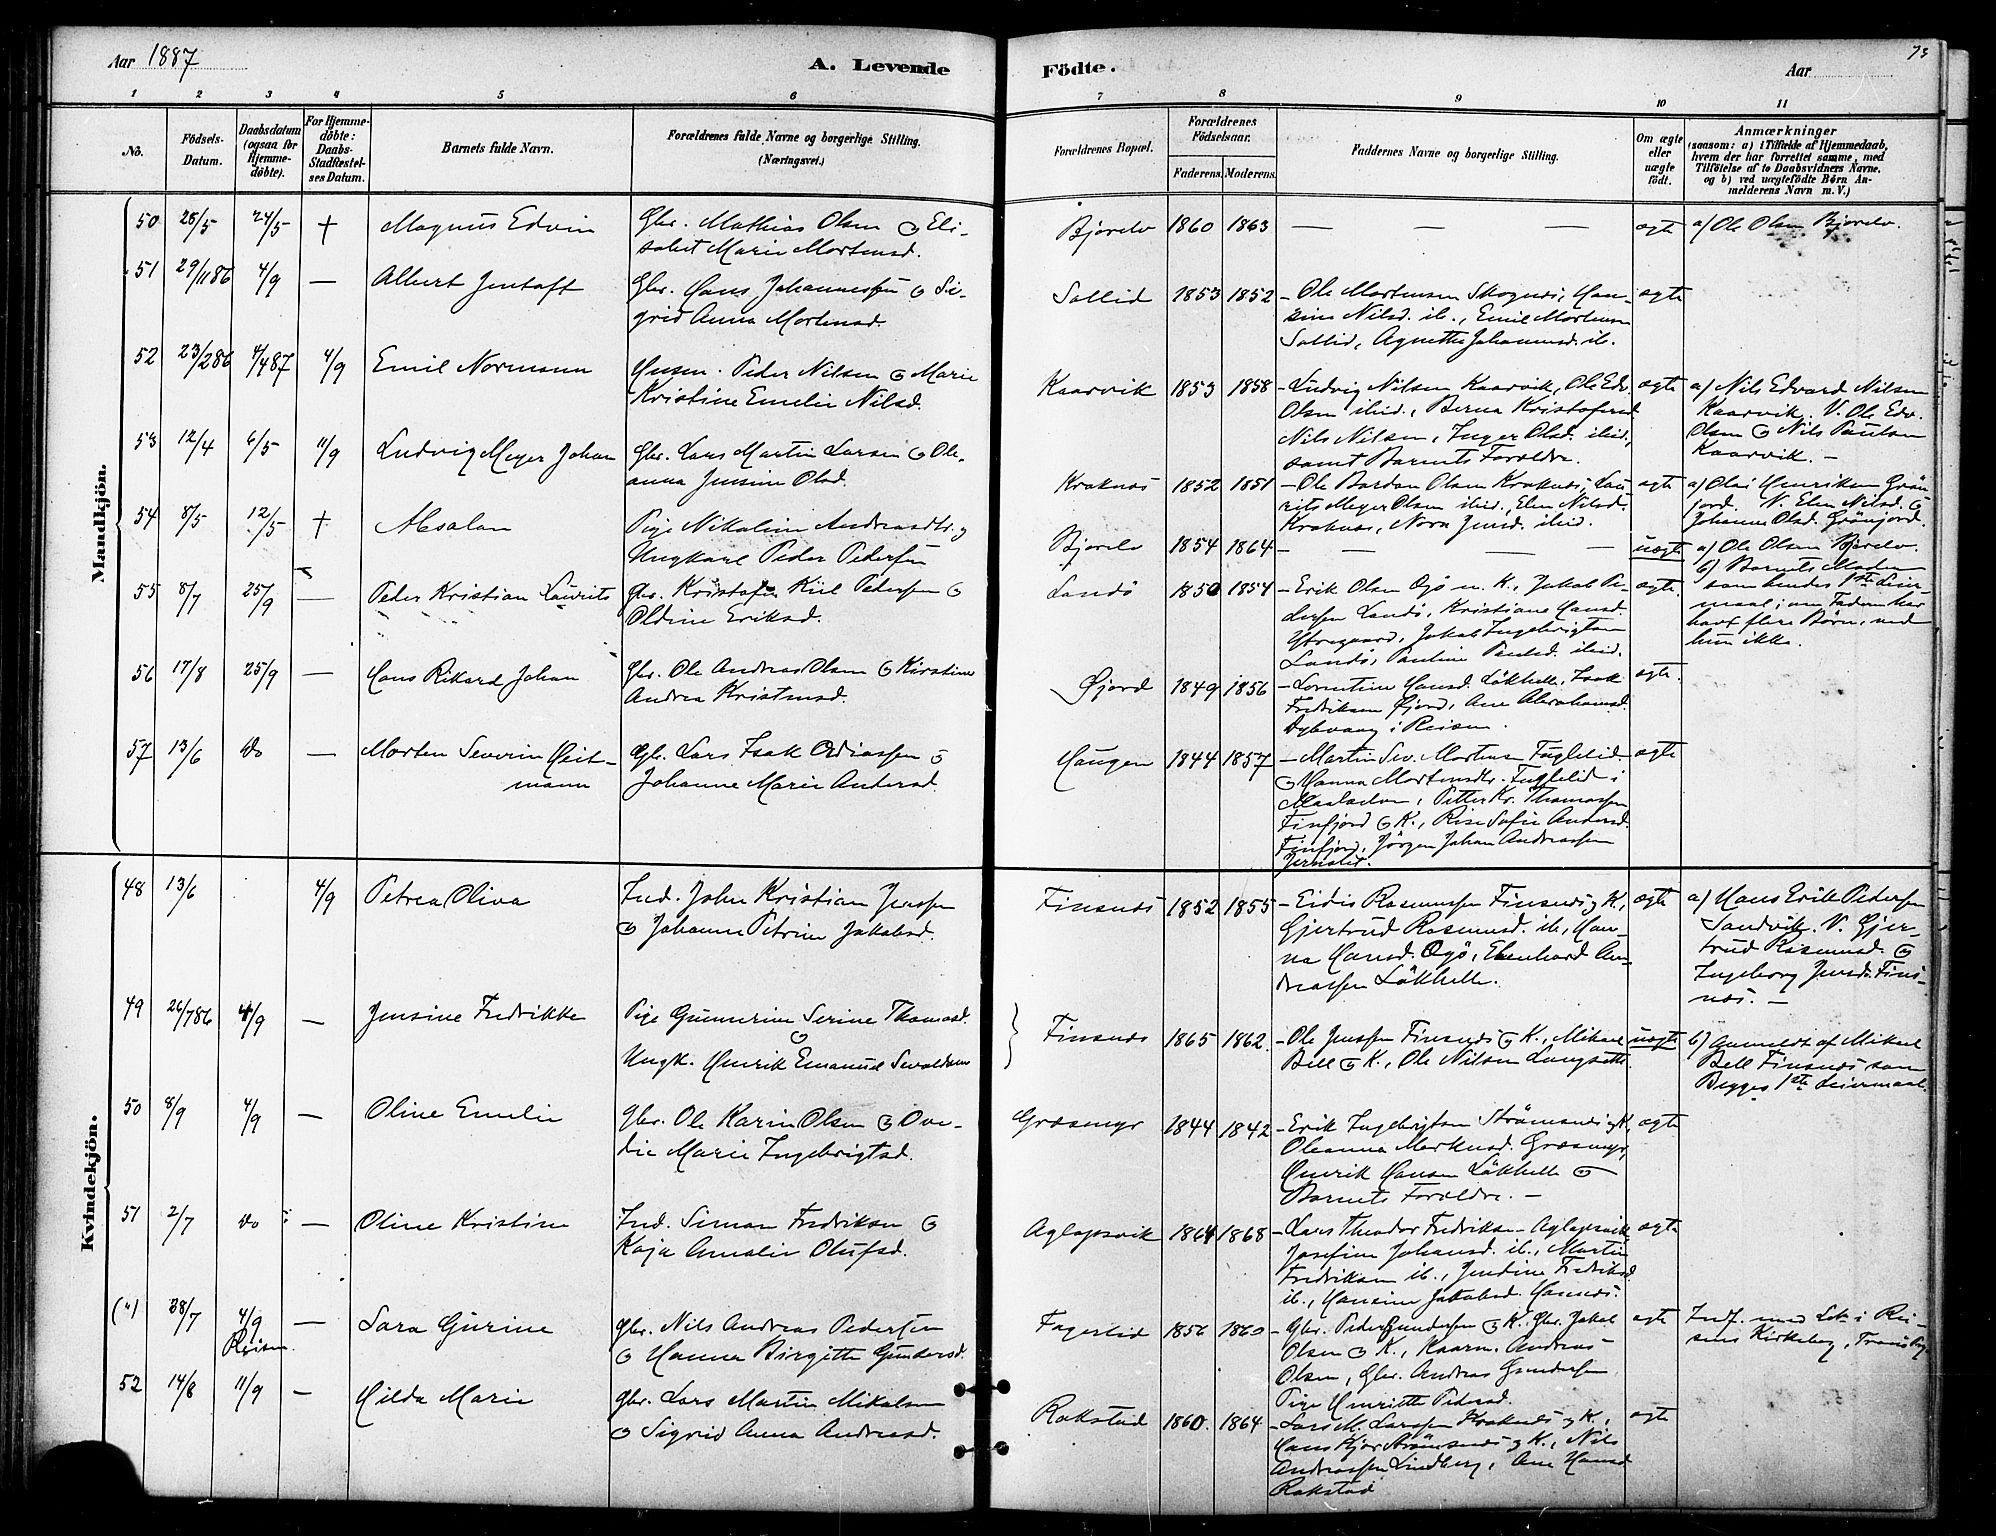 Aar 1887
A. Levende
Födte.
Aar
73
1 2 3 4 5 6 7 8 9 10 11
No.
Födsels-Datum.
Daabsdatum (ogsaa for Hjemme-döbte).
For Hjemme-döbte: Daabs-Stadfæstel-ses Datum.
Barnets fulde Navn.
Forældrenes fulde Navne og borgerlige Stilling.
(Næringsvei.)
Forældrenes Bopæl.
Forældrenes Födselsaar.
Faderens. Moderens.
Faddernes Navne og borgerlige Stilling.
Om ægte eller uægte födt.
Anmærkninger
(saasom: a) i Tilfælde af Hjemmedaab,
hvem der har forrettet samme, med
Tilföielse af to Daabsvidners Navne,
og b) ved uægtefödte Börn An-
melderens Navn m. V.)
Mandkjön.
50 28/5 24/5 + Magnus Edvin Gbr. Mathias Olsen & Eli-
sabet Marie Mortensd.
Bjorelv 1860 1863 — — — ægte a) Ole Olsen Bjorelv.
51 29/1186 4/9 — Albert Jentoft Gbr. Hans Johannessen & Si-
grid Anna Mortensd.
Sollid 1853 1852 – Ole Mortensen Skognes, Han-
sine Nilsd. ib., Emil Mortensen
Sollid, Agnethe Johannesd. ib.
ægte
52 23/286 4/487 4/9 Emil Normann Husm. Peder Nilsen & Marie
Kristine Emelie Nilsd.
Kaarvik 1853 1858 – Ludvig Nilsen Kaarvik, Ole Edv.
Olsen ibid., Berna Kristofersd.
Nils Nilsen, Inger Olsd. ibid.,
samt Barnets Forældre.
ægte a) Nils Edvard Nilsen
Kaarvik. V. Ole Edv.
Olsen & Nils Paulsen
Kaarvik. –
53 12/4 6/5 11/9 Ludvig Meyer Johan Gbr. Lars Martin Larsen & Ole-
anna Jensine Olsd.
Kraknes 1852 1851 – Ole Bardon Olsen Kraknes, Lau-
rits Meyer Olsen ibid., Elen Nilsd.
Kraknes, Nora Jensd. ibid.
ægte a) Olai Henriksen Grön-
jord. V. Elen Nilsd. &
Johanne Olsd. Grönjord.
54 8/5 12/5 + Absalon Pige Nikoline Andreasdtr. &
Ungkarl Peder Pedersen
Bjorelv 1854 1864 — — — — uægte a) Ole Olsen Bjorelv.
b) Barnets Moder
som hendes 1ste Leier-
maal; om Faderen har
havt flere Børn, ved
hun ikke.
55 8/7 25/9 — Peder Kristian Laurits Gbr. Kristofer Kiil Pedersen &
Oldine Eriksd.
Landö 1850 1854 – Erik Olsen Ogö m. K., Jakob Pe-
dersen Landö, Kristiane Hansd.
Ytregaard, Jakob Ingebrigtsen
Landö, Pauline Paulsd. ibid.
ægte.
56 17/8 25/9 — Hans Rikard Johan Gbr. Ole Andreas Olsen & Kirstine
Andrea Kristensd.
Øjord 1849 1856 – Lorentine Hansd. Läkhelle, Isak
Fredriksen Øjord, Ane Abrahamsd.
Dybvaag i Reisen.
ægte.
57 13/6 do — Morten Severin Heit-
mann Gbr. Lars Isak Ordiassen &
Johanne Marie Andersd.
Haugen 1844 1857 – Martin Sev. Mortensen Fuglelid
& Hanna Mortensdtr. Fuglelid i
Maalselven, Petter Kr. Thomassen
Finfjord & K., Rise Sofie Andersd.
Finfjord, Jörgen Johan Andreassen
ægte
Kvindekjön.
48 13/6 4/9 Petrea Oliva Ind. John Kristian Jenssen
& Johanne Petrine Jakobsd.
Finsnes 1852 1855 – Eidis Rasmussen Finsnes & K.,
Gjertrud Rasmusd. ib., Han-
na Hansd. Ogö, Ebenhard An-
dreassen Läkhelle.
ægte a) Hans Erik Pedersen
Sandvik. V. Gjer-
trud Rasmusd. &
Ingeborg Jensd. Fins-
nes. –
49 26/786 4/9 — Jensine Fredrikke Pige Gunnerine Serine Thomasd.
&
Ungk. Henrik Emanuel Sivaldsen
Finsnes 1865 1862. – Ole Jenssen Finsnes & K., Mikael
Bell & K., Ole Nilsen Langsæth.
uægte b) Anmeldt af Mikael
Bell Finsnes som
Begges 1ste Leiermaal.
50 8/9 4/9 — Oline Emelie Gbr. Ole Karin Olsen & Ove-
die Marie Ingebrigtsd.
Græsmyr 1844 1842 – Erik Ingebrigtsen Strömsnes & K.,
Oleanna Markusd. Græsmyr,
Henrik Hansen Läkhelle &
Barnets Forældre. –
ægte
51 2/7 do — Oline Kristine Ind. Simon Fredriksen &
Kaja Amalie Olufsd.
Aglapsvik 1864 1868 – Lars Theodor Fredriksen Aglapsvik,
Josefine Johansd. ib., Martin
Fredriksen ib., Jendine Fredriksd.
ib., Hansine Jakobsd. Hannes.
ægte
(") 28/7 4/9 Reisen — Sara Gurine Gbr. Nils Andreas Pedersen
& Hanna Birgitte Gundersd.
Fagerlid 1856 1860 – Gbr. Peder Gundersen & K., Gbr. Jakob
Olsen & K., Kaarm. Andreas
Olsen, Gbr. Andreas Gundersen
Pige Henriette Pedersd.
ægte Indf. med Lök. i Rei-
sens Kirkebog, Tromsöys.
52 14/8 11/9 — Hilda Marie Gbr. Lars Martin Mikalsen
& Sigrid Anna Andreasd.
Rakstad 1860. 1864 – Lars M. Larssen Kraknes & K.,
Hans Kjer Strömsnes & K., Nils
Andreassen Lindberg, Ane Hansd.
Rakstad
ægte